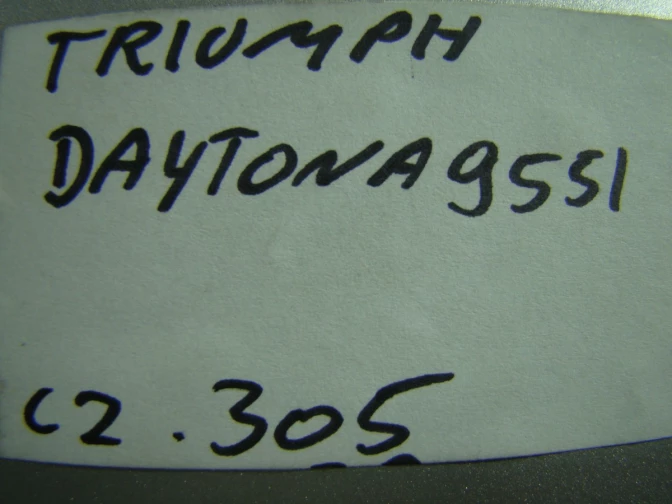 TRIUMPH
DAYTONA 955I
C2.305